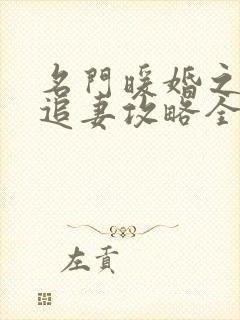 名門暖婚之
追妻攻略全
左貢